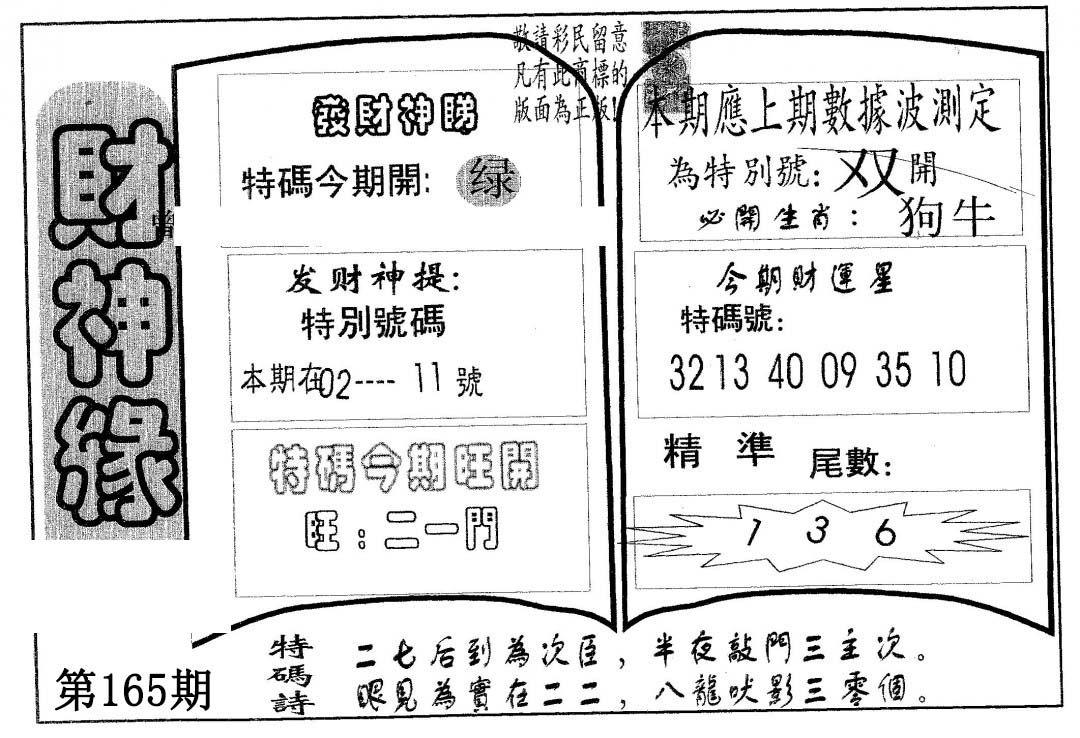 財神緣
敬請彩民留意
凡有此商標的
版面為正版!
發財神睇
特碼今期開: 绿
发财神提:
特別號碼
本期在02---- 11 號
特碼今期旺開
旺:二一門
本期應上期數據波測定
為特別號: 双 開
必開生肖: 狗牛
今期財運星
特碼號:
32 13 40 09 35 10
精準 尾數:
1 3 6
第165期
特碼詩
二七后到為次臣,半夜敲門三主次。
眼見為實在二二,八龍吠影三零個。